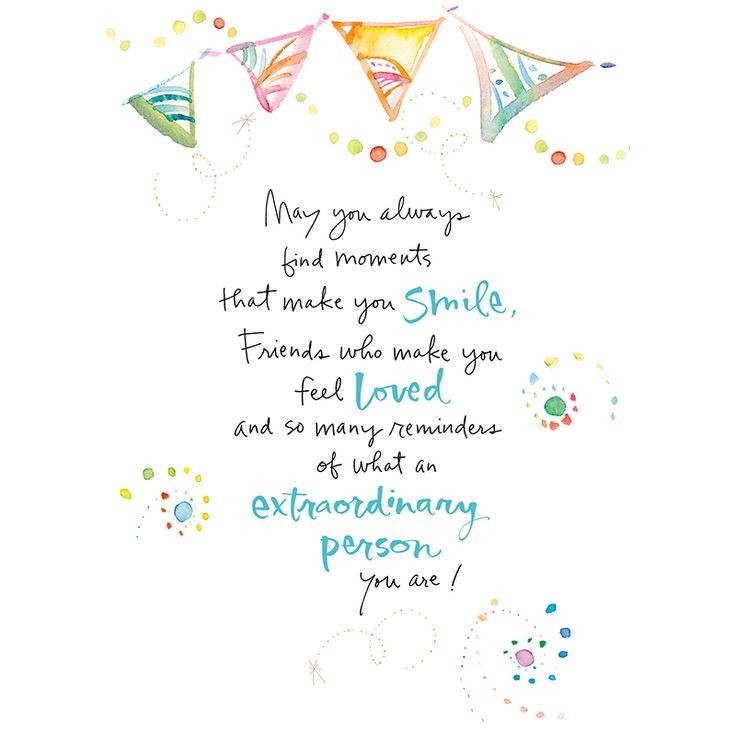 May you always
find moments
that make you smile,
Friends who make you
feel loved
and so many reminders
of what an
extraordinary
person
you are!